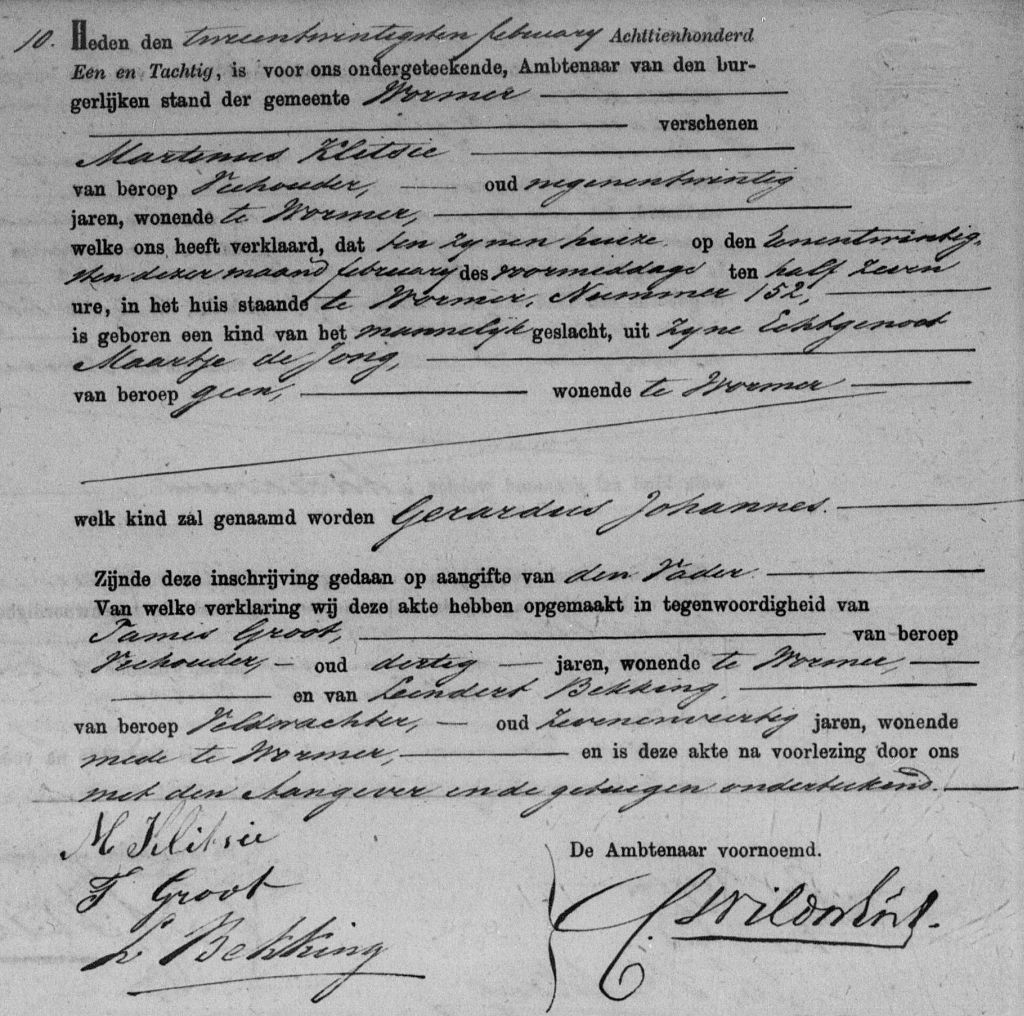 10. Heden den tweeentwintigsten february Achttienhonderd
Een en Tachtig, is voor ons ondergeteekende, Ambtenaar van den bur-
gerlijken stand der gemeente Wormer
verschenen
Martinus Klitsie
van beroep Veehouder, oud negenentwintig
jaren, wonende te Wormer,
welke ons heeft verklaard, dat ten zynen huize op den Eenentwintig-
sten dezer maand february des voormiddags ten half zeven
ure, in het huis staande te Wormer, Nummer 152,
is geboren een kind van het mannelyk geslacht, uit zyne Echtgenoot
Maartje de Jong,
van beroep geen, wonende te Wormer
welk kind zal genaamd worden Gerardus Johannes.
Zijnde deze inschrijving gedaan op aangifte van den Vader.
Van welke verklaring wij deze akte hebben opgemaakt in tegenwoordigheid van
Tames Groot, van beroep
Veehouder, oud dertig jaren, wonende te Wormer,
en van Leendert Bekking,
van beroep Veldwachter, oud zevenenveertig jaren, wonende
mede te Wormer, en is deze akte na voorlezing door ons
met den Aangever en de getuigen onderteekend.
M Klitsie
De Ambtenaar voornoemd.
T Groot
L Bekking